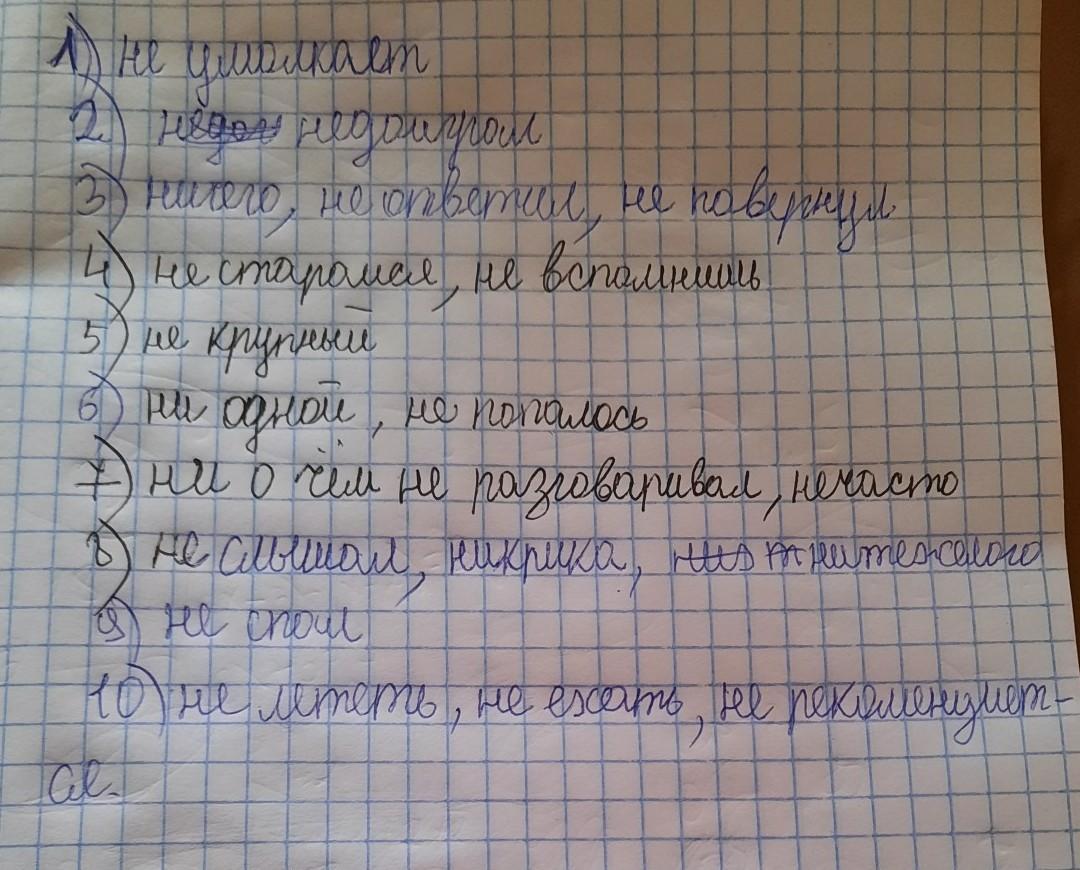 1) не умолкает
2) недоиграл
3) ничего, не ответил, не повернул
4) не старался, не вспомнишь
5) не крупный
6) ни одной, не попалось
7) ни о чём не разговаривал, нечасто
8) не слышал, никрика, нитяжёлого
9) не спал
10) не лететь, не ехать, не рекомендует-
ся.